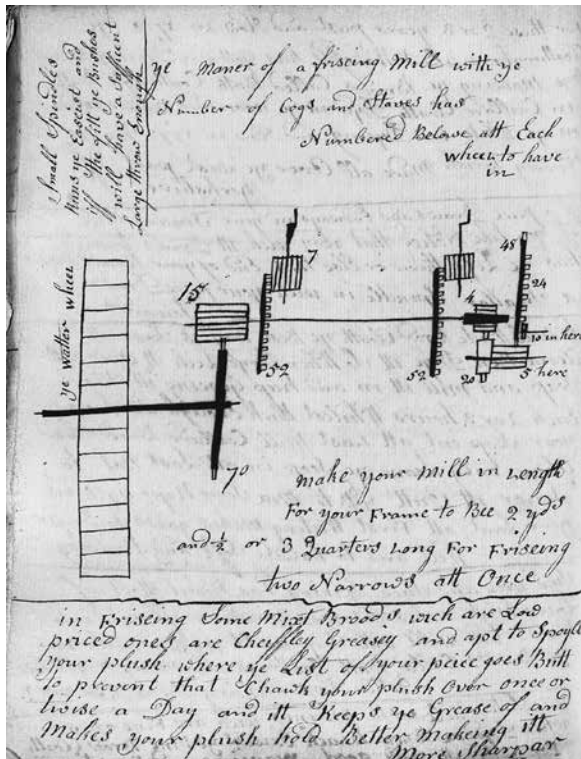 Small Spindles
Runs ye Easeist and
if they fitt ye Bushes
will have a Suffient
Large throw Enough
ye Maner of a friseing Mill with ye
Number of Cogs and Staves has
Numbered Below att Each
wheel to have
in
ye watter wheel
15
7
52
70
52
4
20
48
24
10 in here
5 here
make your Mill in Length
For your Frame to Bee 2 yds
and ½ or 3 Quarters Long For Friseing
two Narrows att Once
in Friseing Some Mixt Broods wich are Low
priced ones are Cheiffley Greasey and apt to Spoyll
your plush where ye List of your peice goes Butt
to prevent that Chawk your plush Over once or
twise a Day and itt Keeps ye Grease of and
Makes your plush hold Better Makeing itt
More Sharpar